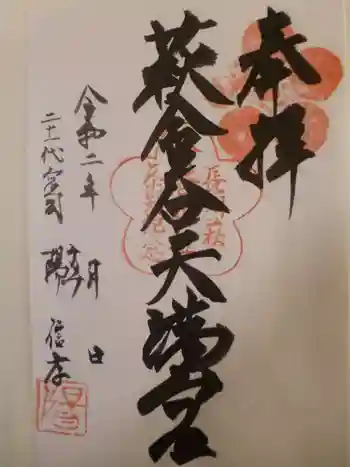 奉拝
萩金谷天満宮
令和二年 月 日
二十一代宮司 陽 信孝